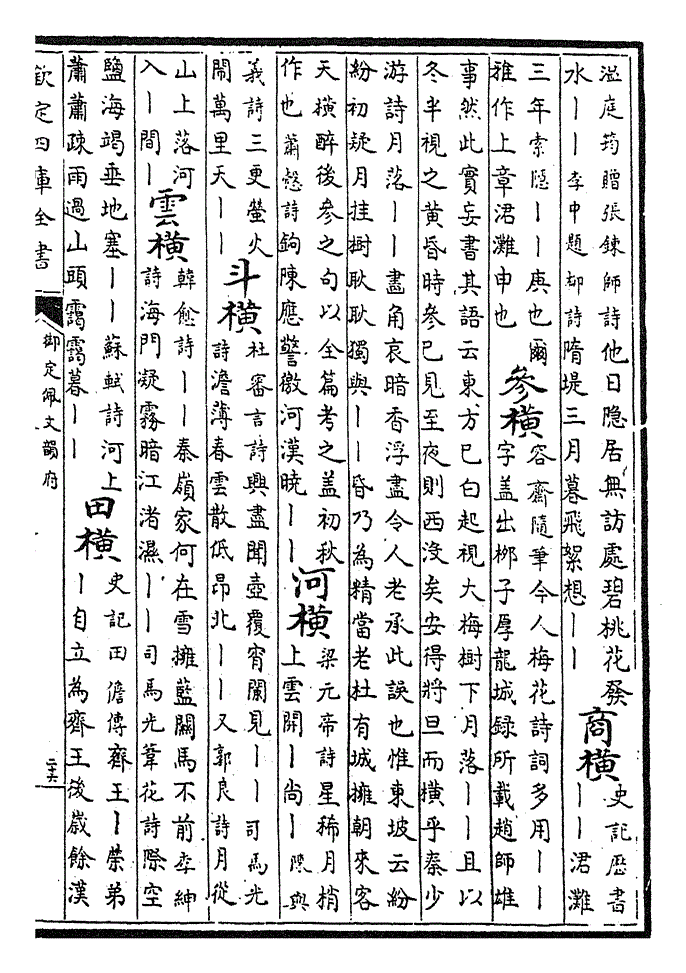 溢庭筠贈張鍊師詩他日隐居無訪處碧桃花發
水丨丨李中題柳詩隋堤三月暮飛絮想丨丨
商橫
史記厯書
丨丨涒灘
三年索隱丨丨庚也爾
雅作上章涒灘申也
參橫
容齋隨筆今人梅花詩詞多用丨丨
字盖出栁子厚龍城録所載趙師雄
事然此實妄書其語云東方已白起視大梅樹下月落丨丨且以
冬半視之黄昏時參已見至夜則西没矣安得將旦而橫乎秦少
游詩月落丨丨畫角哀暗香浮盡令人老承此誤也惟東坡云紛
紛初疑月挂樹耿耿獨與丨丨昏乃為精當老杜有城擁朝來客
天橫醉後參之句以全篇考之盖初秋
作也蕭慤詩鉤陳應警徼河漢曉丨丨
河橫
梁元帝詩星稀月梢
上雲開丨尚丨陳與
義詩三更螢火
閙萬里天丨丨
斗橫
杜審言詩興盡聞壺覆宵闌見丨丨司馬光
詩澹薄春雲散低昂北丨丨又郭良詩月從
山上落河
入丨間丨
雲橫
韓愈詩丨丨秦嶺家何在雪擁藍關馬不前李紳
詩海門凝霧暗江渚濕丨丨司馬光葦花詩際空
鹽海竭垂地塞丨丨蘇軾詩河上
蕭蕭疎雨過山頭靄靄暮丨丨
田橫
史記田儋傳齊王丨榮弟
丨自立為齊王後歲餘漢
欽定四庫全書
御定佩文韻府
二十六